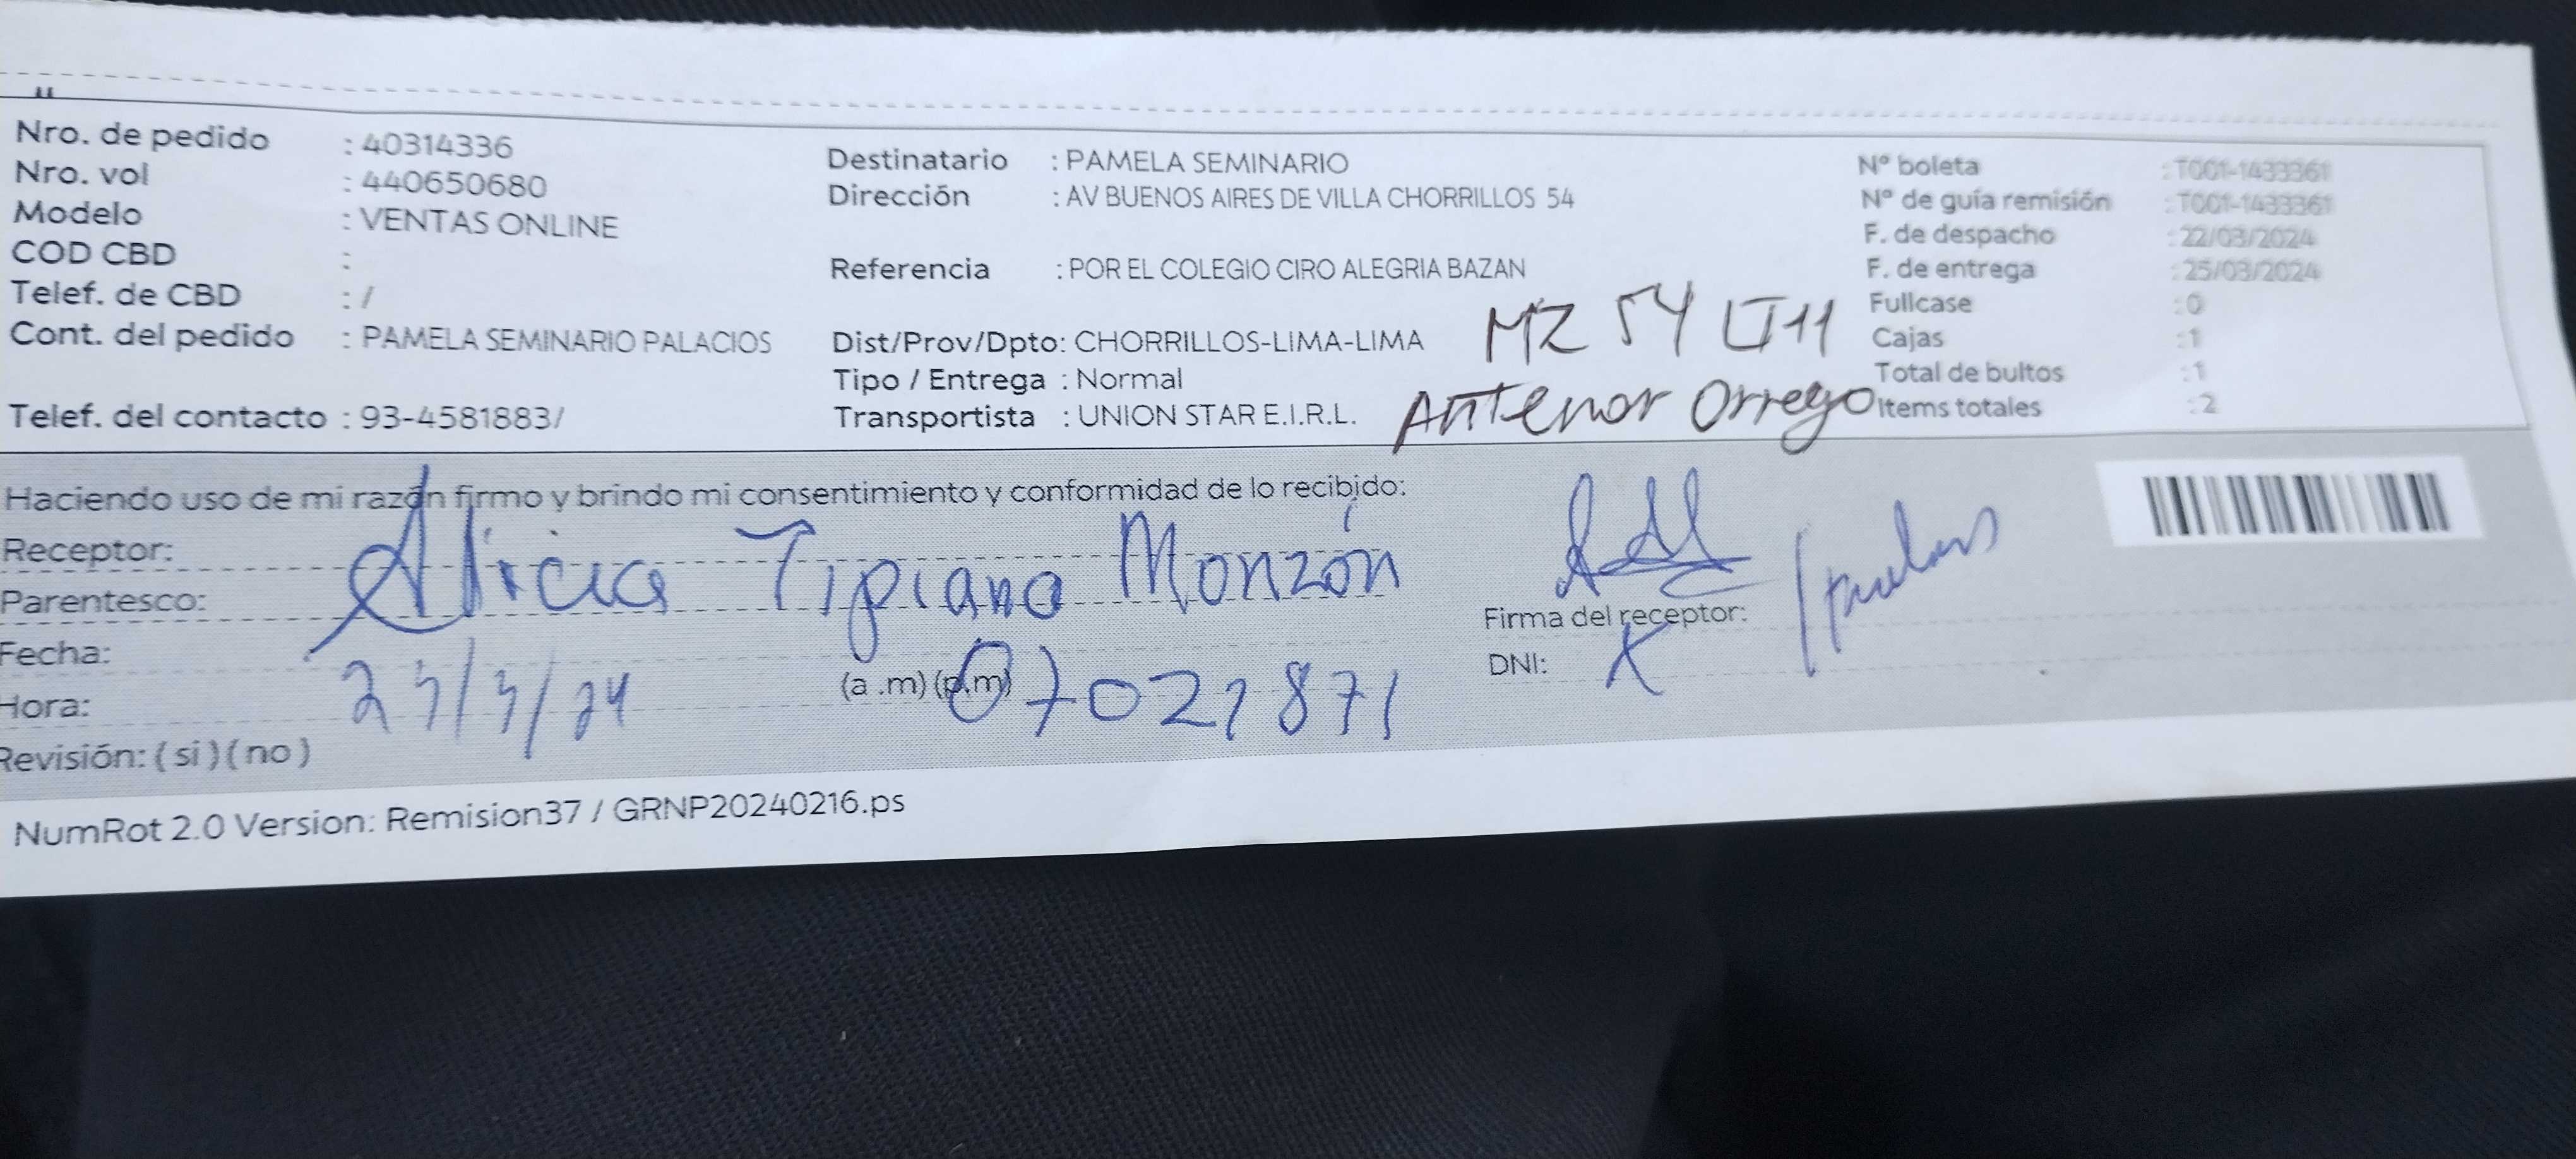 Nro. de pedido : 40314336
Nro. vol : 440650680
Modelo : VENTAS ONLINE
COD CBD :
Telef. de CBD : /
Cont. del pedido : PAMELA SEMINARIO PALACIOS
Telef. del contacto : 93-4581883/
Destinatario : PAMELA SEMINARIO
Dirección : AV BUENOS AIRES DE VILLA CHORRILLOS 54
Referencia : POR EL COLEGIO CIRO ALEGRIA BAZAN
Dist/Prov/Dpto: CHORRILLOS-LIMA-LIMA
Tipo / Entrega : Normal
Transportista : UNION STAR E.I.R.L.
MZ 54 LT11
Antenor Orrego
Nº boleta : T001-1433361
Nº de guía remisión : T001-1433361
F. de despacho : 22/03/2024
F. de entrega : 25/03/2024
Fullcase : 0
Cajas : 1
Total de bultos : 1
Items totales : 2
Haciendo uso de mi razón firmo y brindo mi consentimiento y conformidad de lo recibido:
Receptor:
Parentesco:
Alicia Tipiana Monzón
Fecha:
Hora:
(a .m) (p.m)
Firma del receptor:
DNI:
Revisión: ( si ) ( no )
NumRot 2.0 Version: Remision37 / GRNP20240216.ps